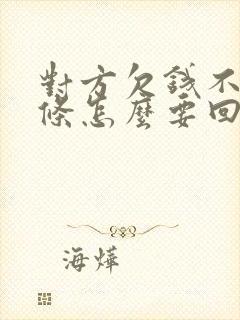 對方欠錢不
條怎麼要回
海燁